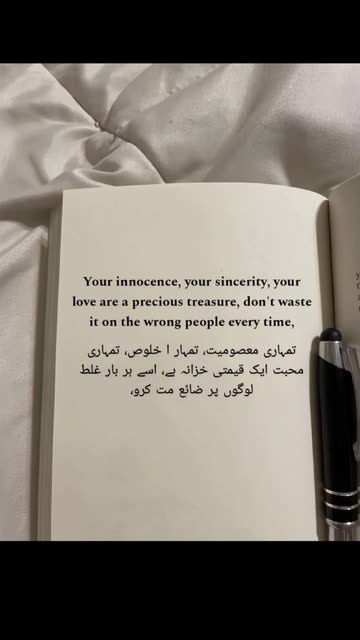 Your innocence, your sincerity, your
love are a precious treasure, don't waste
it on the wrong people every time,
تمہاری معصومیت، تمہار ا خلوص، تمہاری
محبت ایک قیمتی خزانہ ہے، اسے ہر بار غلط
لوگوں پر ضائع مت کرو،